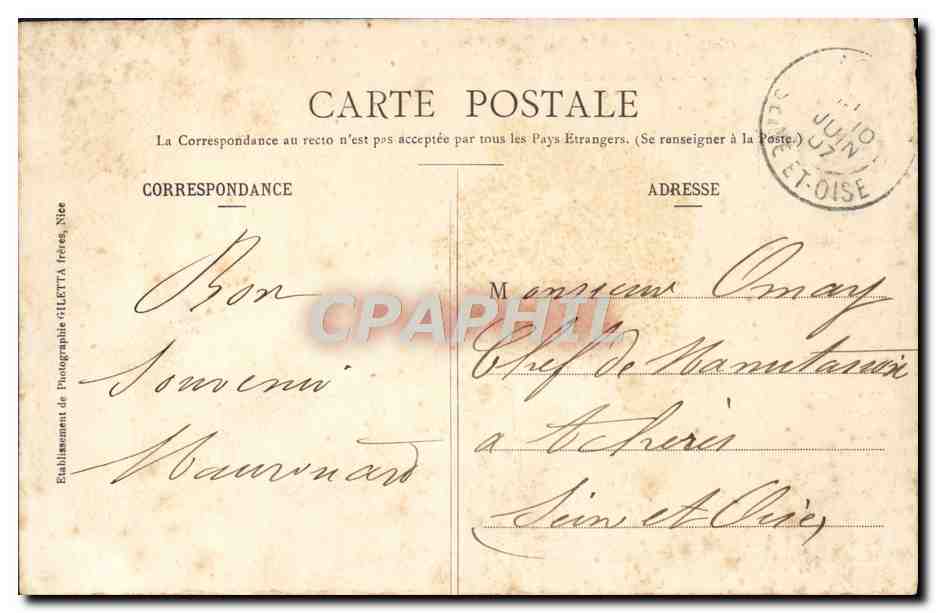 CARTE POSTALE
La Correspondance au recto n'est pas acceptée par tous les Pays Etrangers. (Se renseigner à la Poste.)
CORRESPONDANCE
Bon
Souvenir
ADRESSE
Monsieur Omay
Chef de Manutation
a Acheres
Sein et Oise
10
JUIN
07
SEINE-ET-OISE
Etablissement de Photographie GILETTA frères, Nice
CPAPHIL